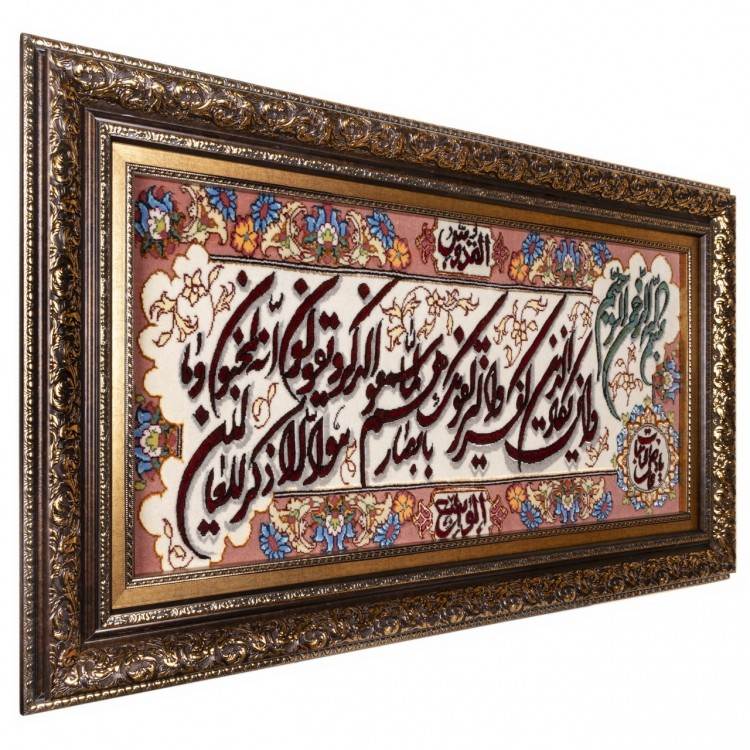 القدوس
بسم الله الرحمن الرحیم
وان یکاد الذین کفروا لیزلقونک بابصارهم لما سمعوا الذکر و یقولون انه لمجنون وما
هو الا ذکر للعالمین
الواسع